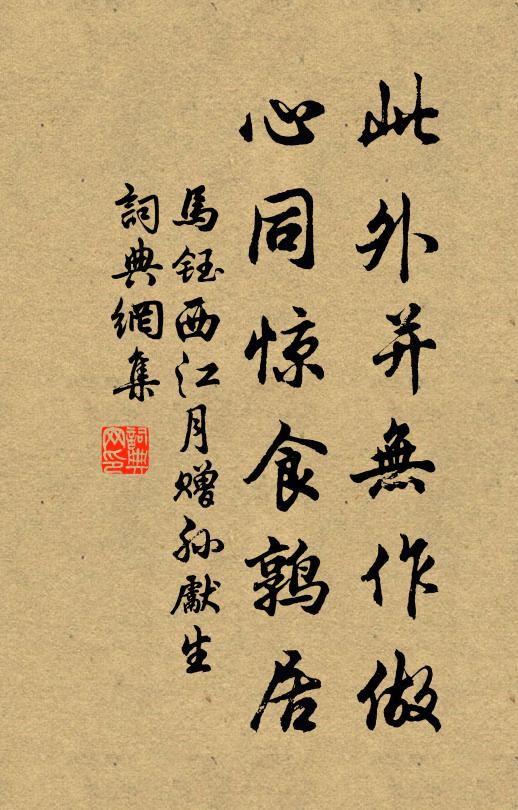 此外并無作做
心同惊食鶉居
馬鈺西江月赠孙獻生
詞典網集
詞典網印